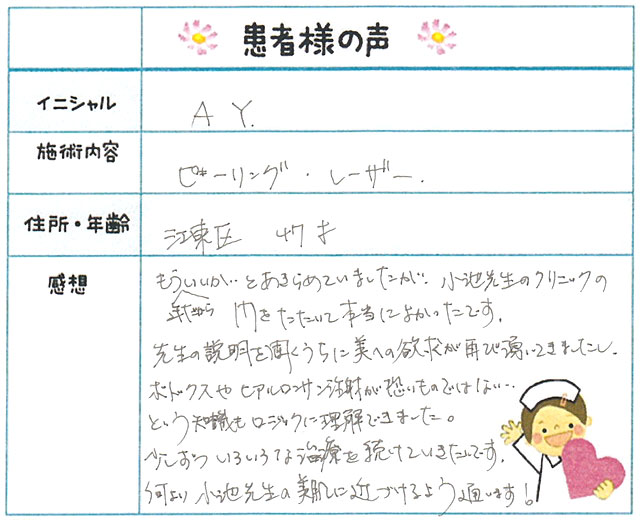 患者様の声
イニシャル
A Y.
施術内容
ピーリング・レーザー.
住所・年齢
江東区 47才
感想
もういいか‥とあきらめていましたが、小池先生のクリニックの
年だから
門をたたいて本当によかったです。
先生の説明を聞くうちに美への欲求が再び湧いてきましたし、
ボトックスやヒアルロンサン注射が恐いものではない‥
という知識もロジックに理解できました。
少しずついろいろな治療を続けていきたいです。
何より小池先生の美肌に近づけるよう通います!